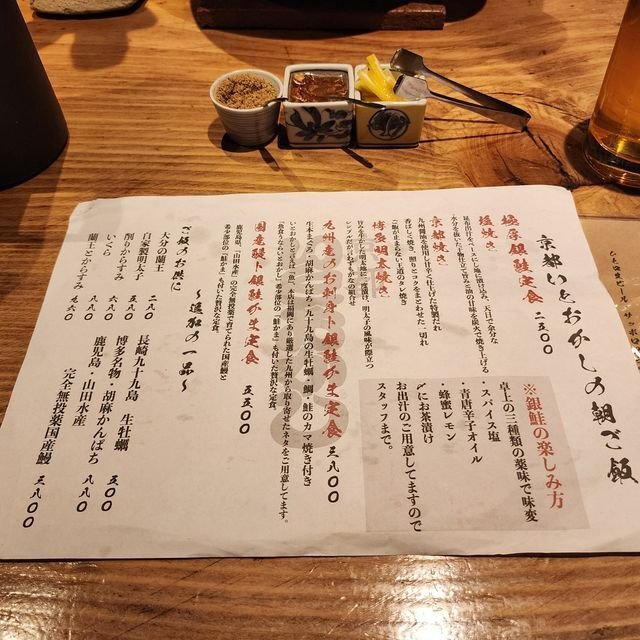 京都いとおかしの朝ご飯
※銀鮭の楽しみ方
卓上の三種類の薬味で味変
・スパイス塩
・青唐辛子オイル
・蜂蜜レモン
〆にお茶漬け
お出汁のご用意してますので
スタッフまで。
極厚銀鮭定食 二五〇〇
塩焼き
昆布出汁をベースにした地に漬け込み、天日で余分な
水分を抜いた一物仕立て旨みご飯の甘味を炭火で焼き上げる
京都焼き
九州醤油を使用し甘辛く仕上げた特製だれ
香ばしく焼き、照りとコクをまとわせた一切れ
ご飯が止まらない王道のタレ焼き
博多明太焼き
九州産お刺身ト銀鮭かま定食 三八〇〇
生本まぐろ・胡麻かんぱち・九十九島の生牡蠣・鯛・鮭のカマ焼き付き
いとおかしと言えば「魚」、本店は福岡にあり厳選した九州から取り寄せたネタをご用意してます。
希少部位の「鮭かま」も付いた贅沢な定食。
国産鰻ト銀鮭かま定食 五五〇〇
鹿児島県、「山田水産」の完全無投薬で育てられた国産鰻と
希少部位の「鮭かま」も付いた贅沢な定食。
ご飯のお供に
〜追加の一品〜
大分の蘭王 二八〇
自家製明太子 五八〇
削りからすみ 六八〇
いくら 八八〇
蘭王とからすみ 九六〇
長崎九十九島 生牡蠣 五〇〇
博多名物・胡麻かんぱち 八八〇
鹿児島・山田水産
完全無投薬国産鰻 三八〇〇